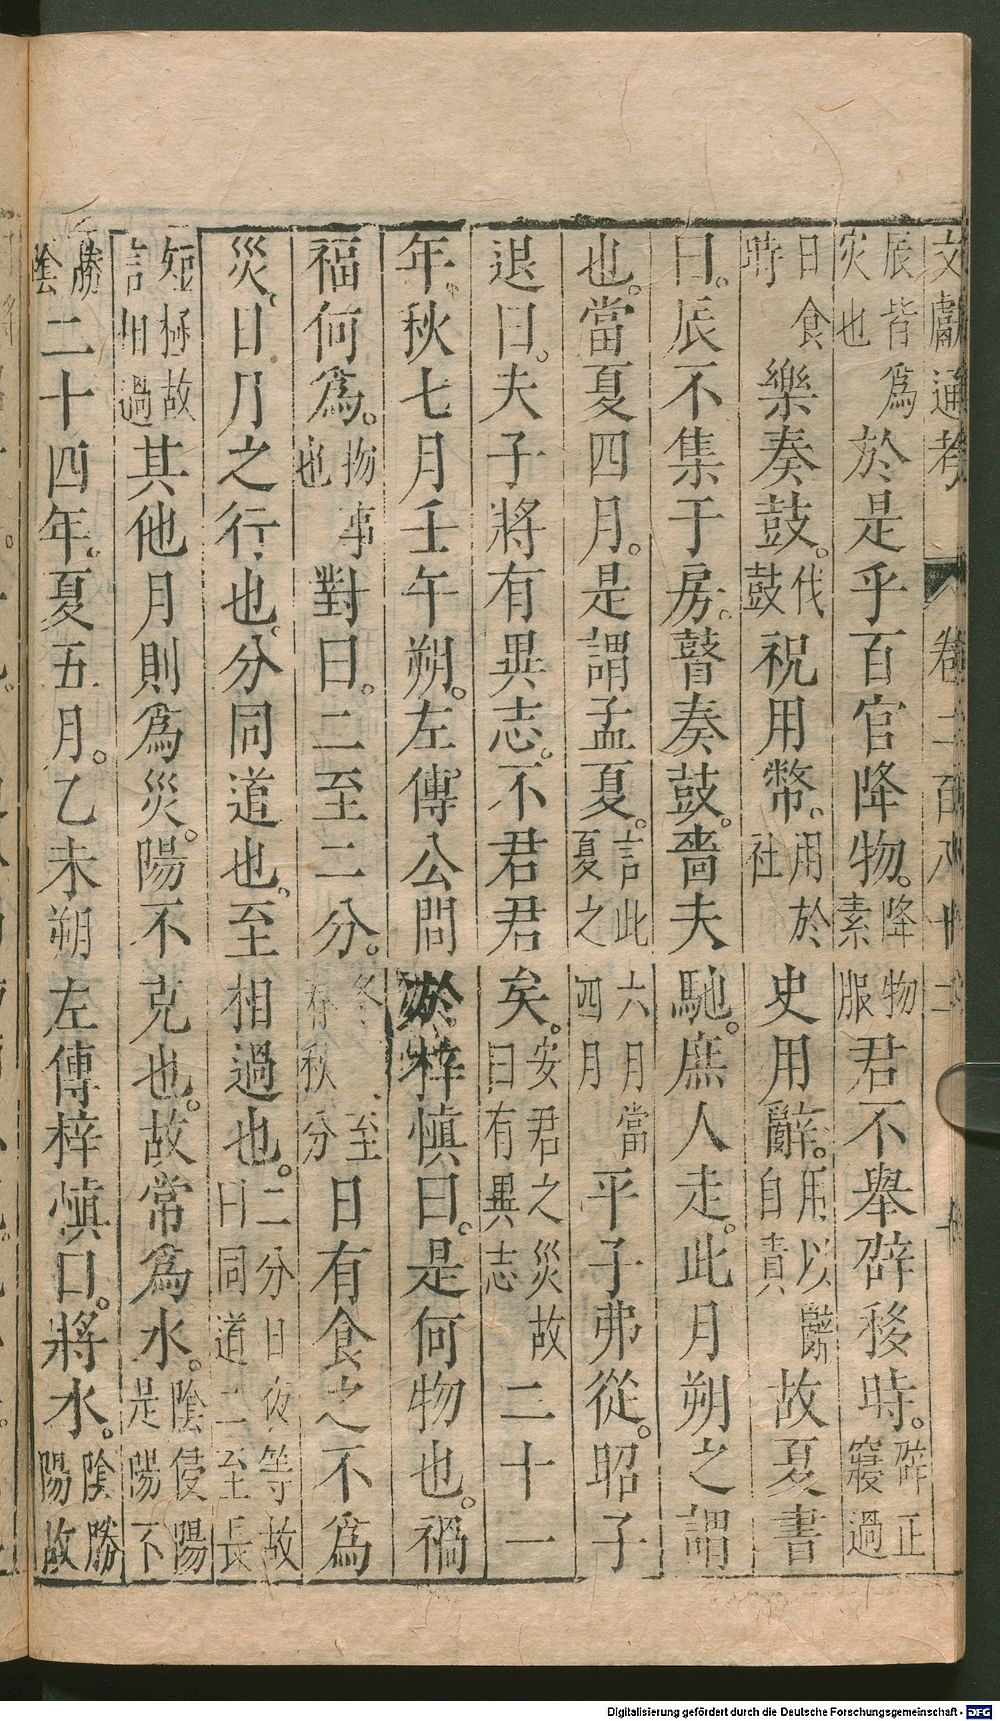 文獻通考 卷二百八十二
辰皆爲災也於是乎百官降物。降物素服君不舉辟移時。辟正寢過
日食時樂奏鼓。伐鼓祝用幣。用於社史用辭。用以辭自責故夏書
曰。辰不集于房。瞽奏鼓。嗇夫馳。庶人走。此月朔之謂
也。當夏四月。是謂孟夏。言此六月當夏之四月平子弗從。昭子
退曰。夫子將有異志。不君君矣。安君之災故曰有異志二十一
年。秋七月壬午朔。左傳公問於梓慎曰。是何物也。禍
福何爲。物事也對曰。二至二分。冬至春秋分日有食之不爲
災。日月之行也。分同道也。至相過也。二分日夜等故日同道二至長
短極故言相過其他月則爲災。陽不克也。故常爲水。陰侵陽是陽不
勝陰二十四年。夏五月。乙未朔左傳梓慎曰。將水。陰勝陽故
Digitalisierung gefördert durch die Deutsche Forschungsgemeinschaft - DFG